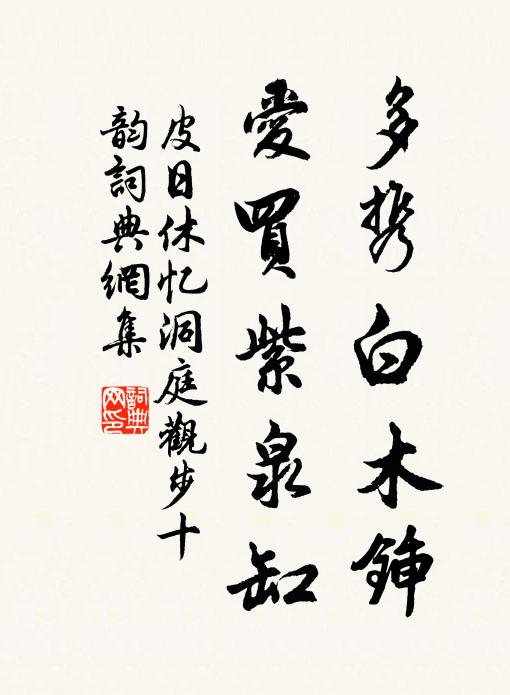 多携白木鍤
愛買紫泉缸
皮日休忆洞庭觀步十
韵詞典網集
詞典
网印